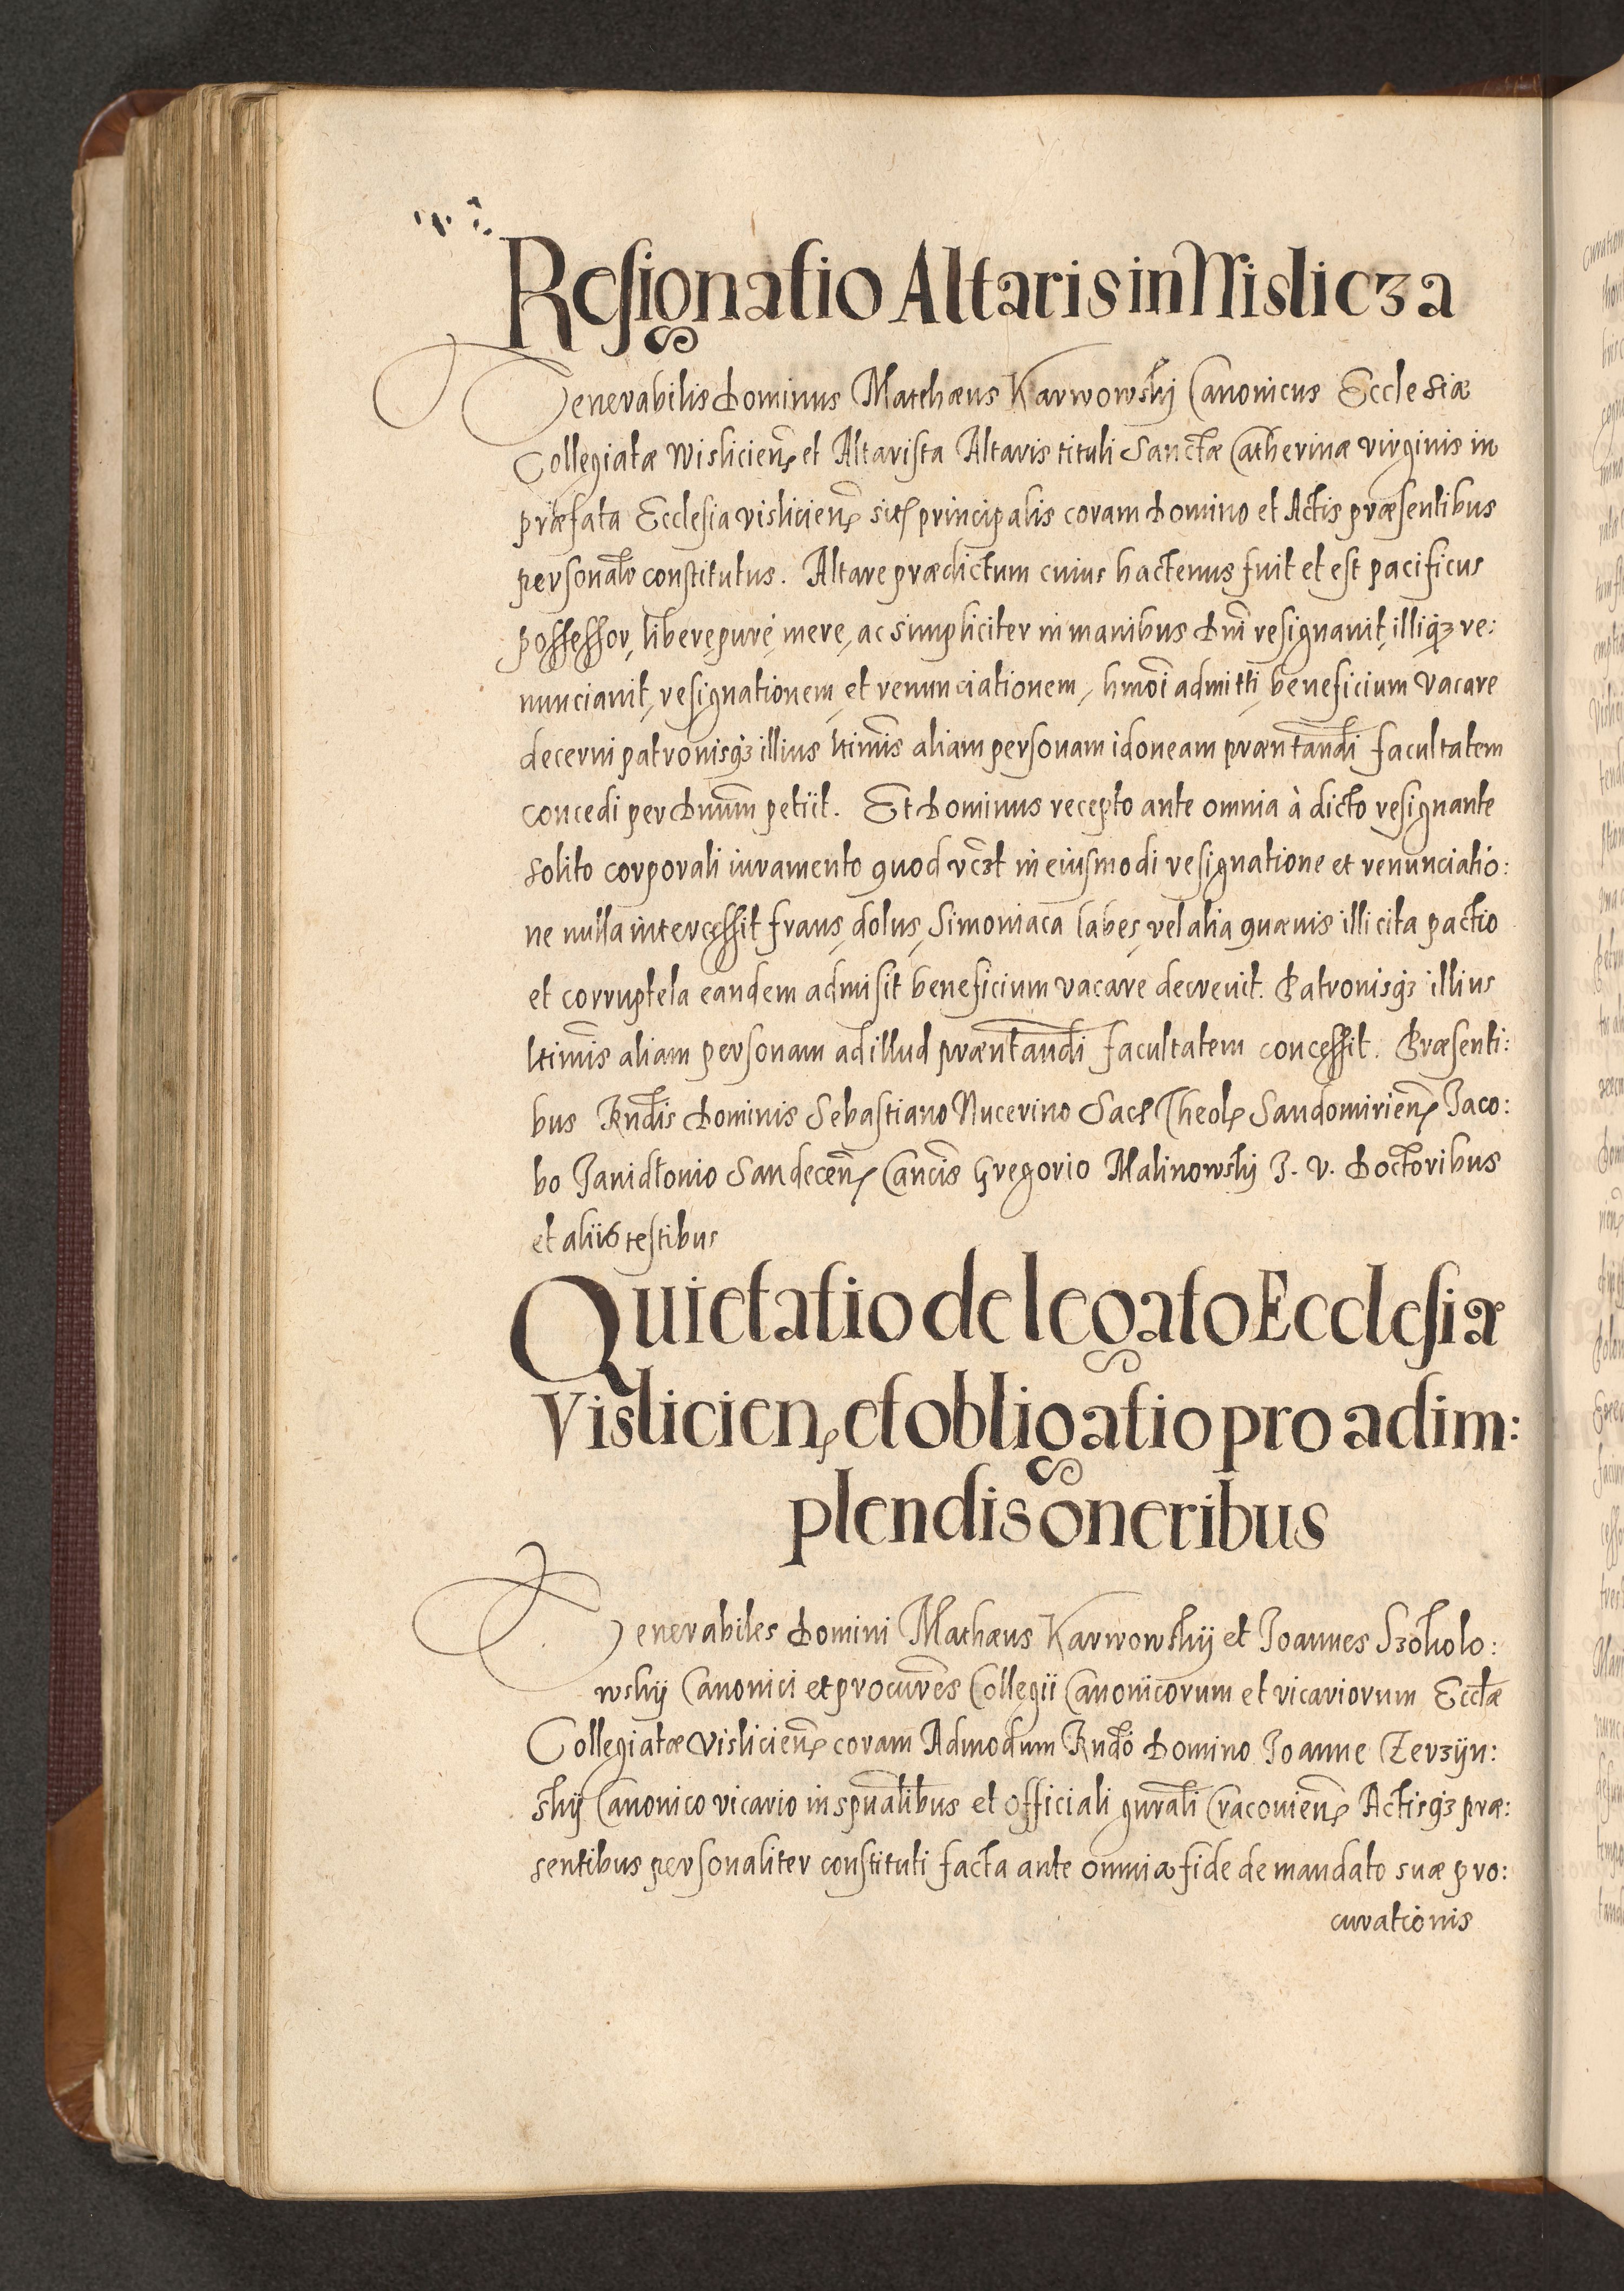 Resignatio Altaris in Wislicza
Venerabilis Dominus Matthæus Karwowskÿ Canonicus Ecclesiæ
Collegiatæ Wisliciens̄ et Altarista Altaris tituli Sanctæ Catherinæ virginis in
præfata Ecclesia visliciens̄ siti principalis coram Domino et Actis præsentibus
personalr̄ constitutus. Altare prædictum cuius hactenus fuit et est pacificus
possessor, libere, pure, mere, ac simpliciter in manibus Dn̄i resignavit, illiq3 re:
nunciavit, resignationem, et renunciationem, hmōi admitti, beneficium vacare
decerni patronisq3 illius ltimīs aliam personam idoneam præntandī facultatem
concedi per Dnūm petiit. Et Dominus recepto ante omnia à dicto resignante
solito corporali iuramento quod vc3t in eiusmodi resignatione et renunciatio:
ne nulla intercessit fraus, dolus, Simoniaca labes, vel alia quævis illicita pactio
et corruptela eandem admisit beneficium vacare decrevit. Patronisq3 illius
ltimīs aliam personam ad illud præntandī facultatem concessit. Præsenti:
bus Rndīs Dominis Sebastiano Nucerino Sacr̄ Theol̄ Sandomiriens̄ Jaco:
bo Janidlonio Sandecens̄ Cancīs Gregorio Malinowskÿ J. V. Doctoribus
et aliis testibus
Quietatio de legato Ecclesiæ
Visliciens̄ et obligatio pro adim:
plendis oneribus
Venerabiles Domini Mathæus Karwowskÿ et Joannes S3okolo:
wskÿ Canonici et procurēs Collegii Canonicorum et vicariorum Ecclǣ
Collegiatæ Visliciens̄ coram Admodum Rndō Domino Joanne Zer3ÿn:
skÿ Canonico vicario in spūalibus et officiali gnrālī Cracoviens̄ Actisq3 præ:
sentibus personaliter constituti facta ante omnia fide de mandato suæ pro:
curationis